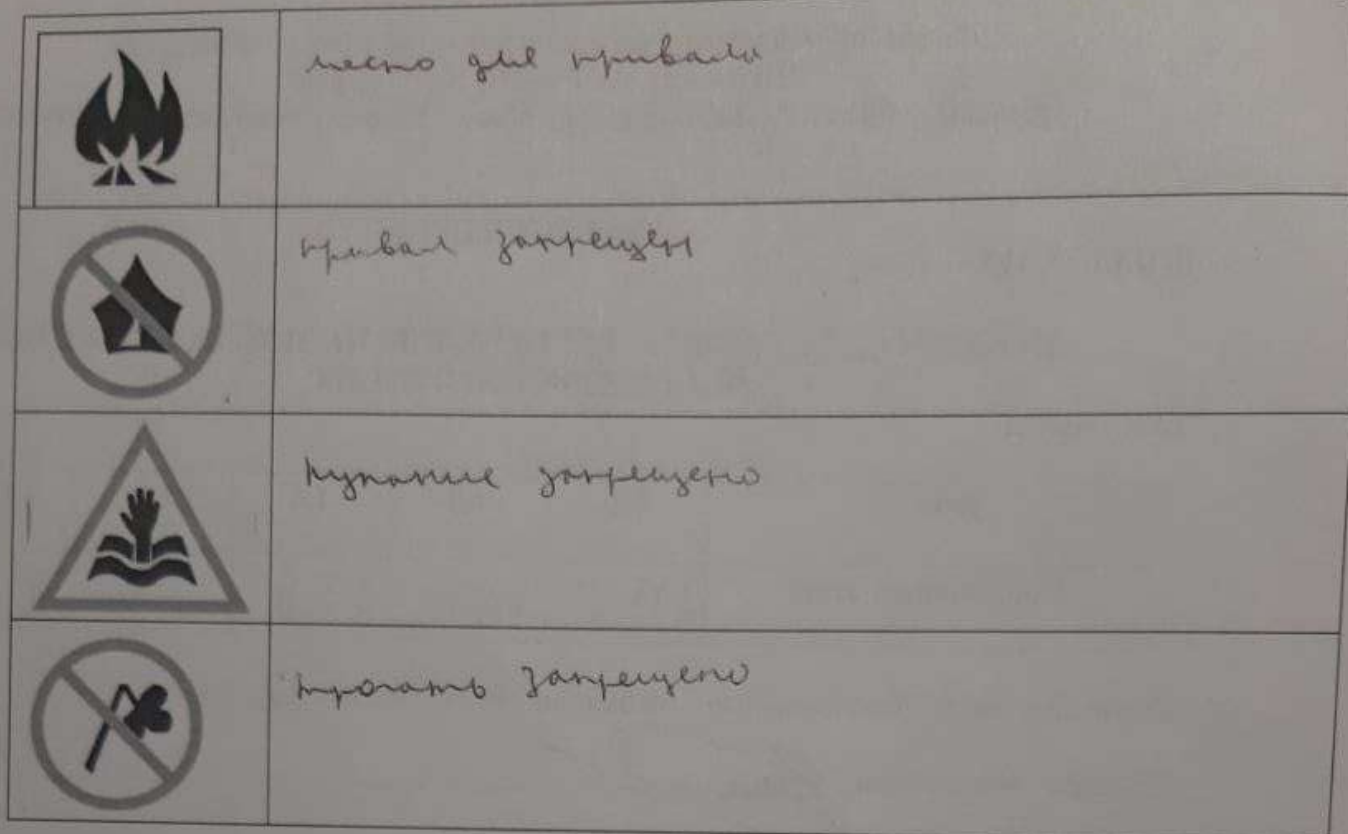 место для привала
привал запрещен
купание запрещено
трогать запрещено